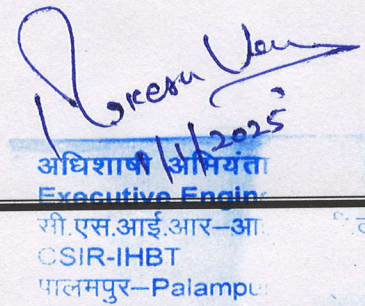 1/1/2025
अधिशाषी अभियंता
Executive Engin
सी.एस.आई.आर–आ
CSIR-IHBT
पालमपुर–Palampu